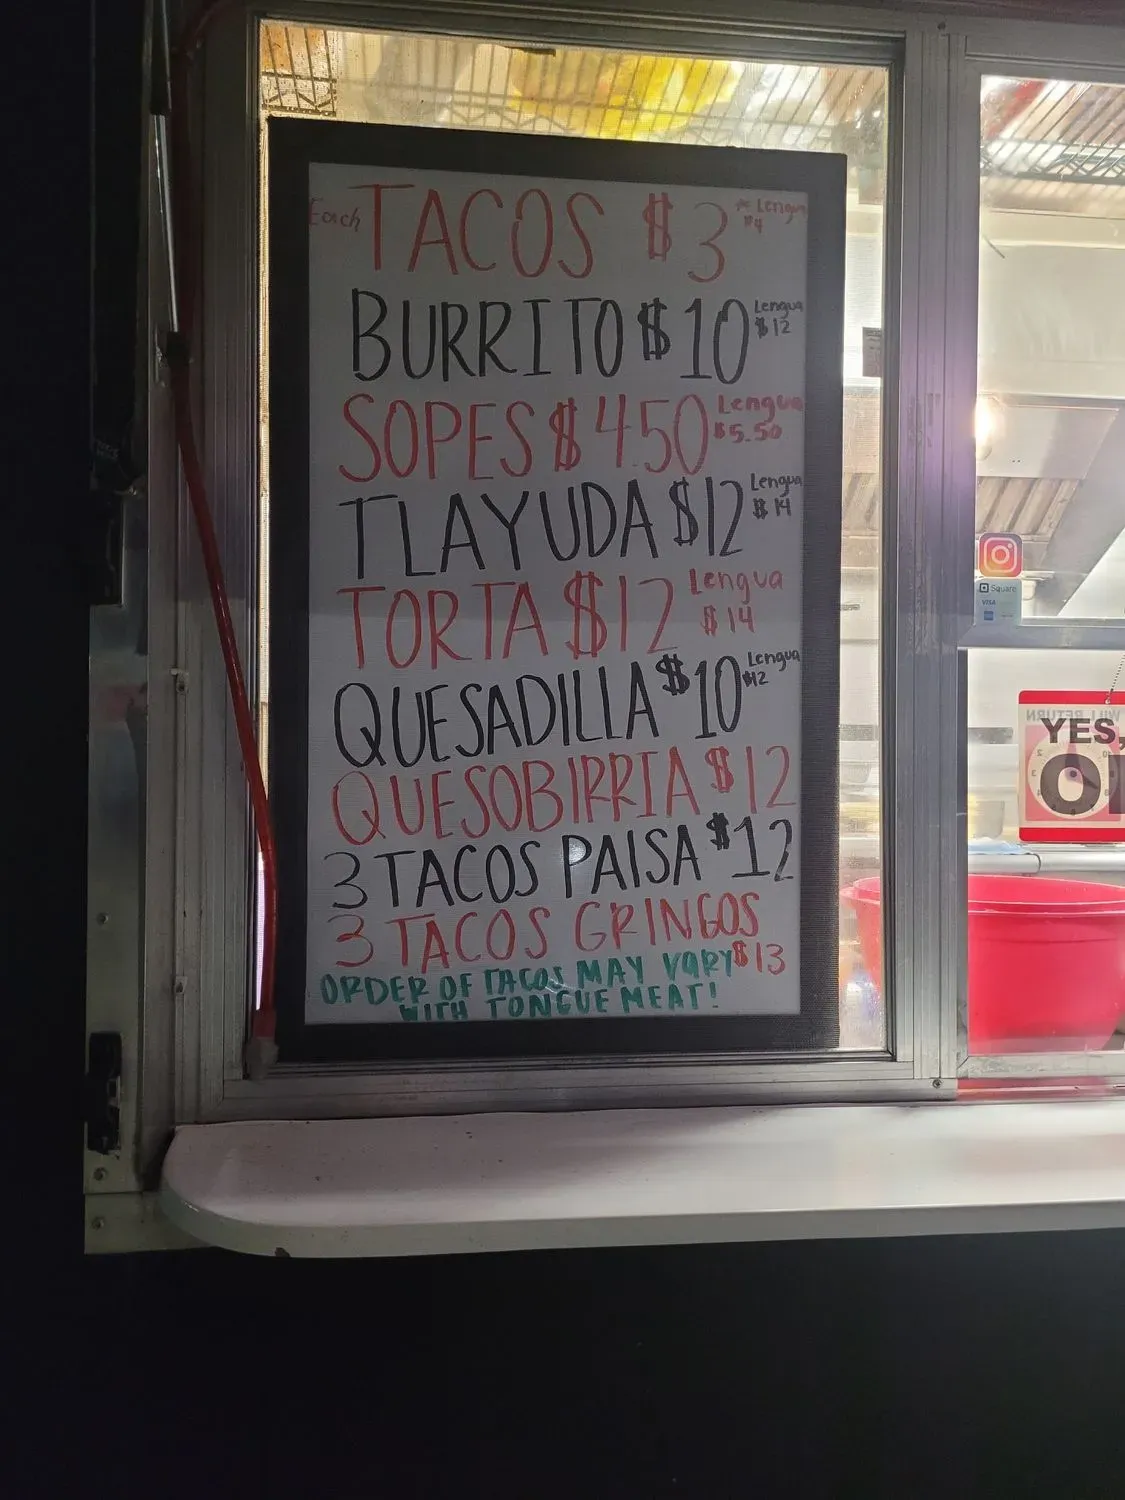 Each TACOS $3 * Lengua $4
BURRITO $10 Lengua $12
SOPES $4.50 Lengua $5.50
TLAYUDA $12 Lengua $14
TORTA $12 Lengua $14
QUESADILLA $10 Lengua $12
QUESOBIRRIA $12
3 TACOS PAISA $12
3 TACOS GRINGOS $13
ORDER OF TACOS MAY VARY
WITH TONGUE MEAT!
Square
VISA
WILL RETURN
YES,